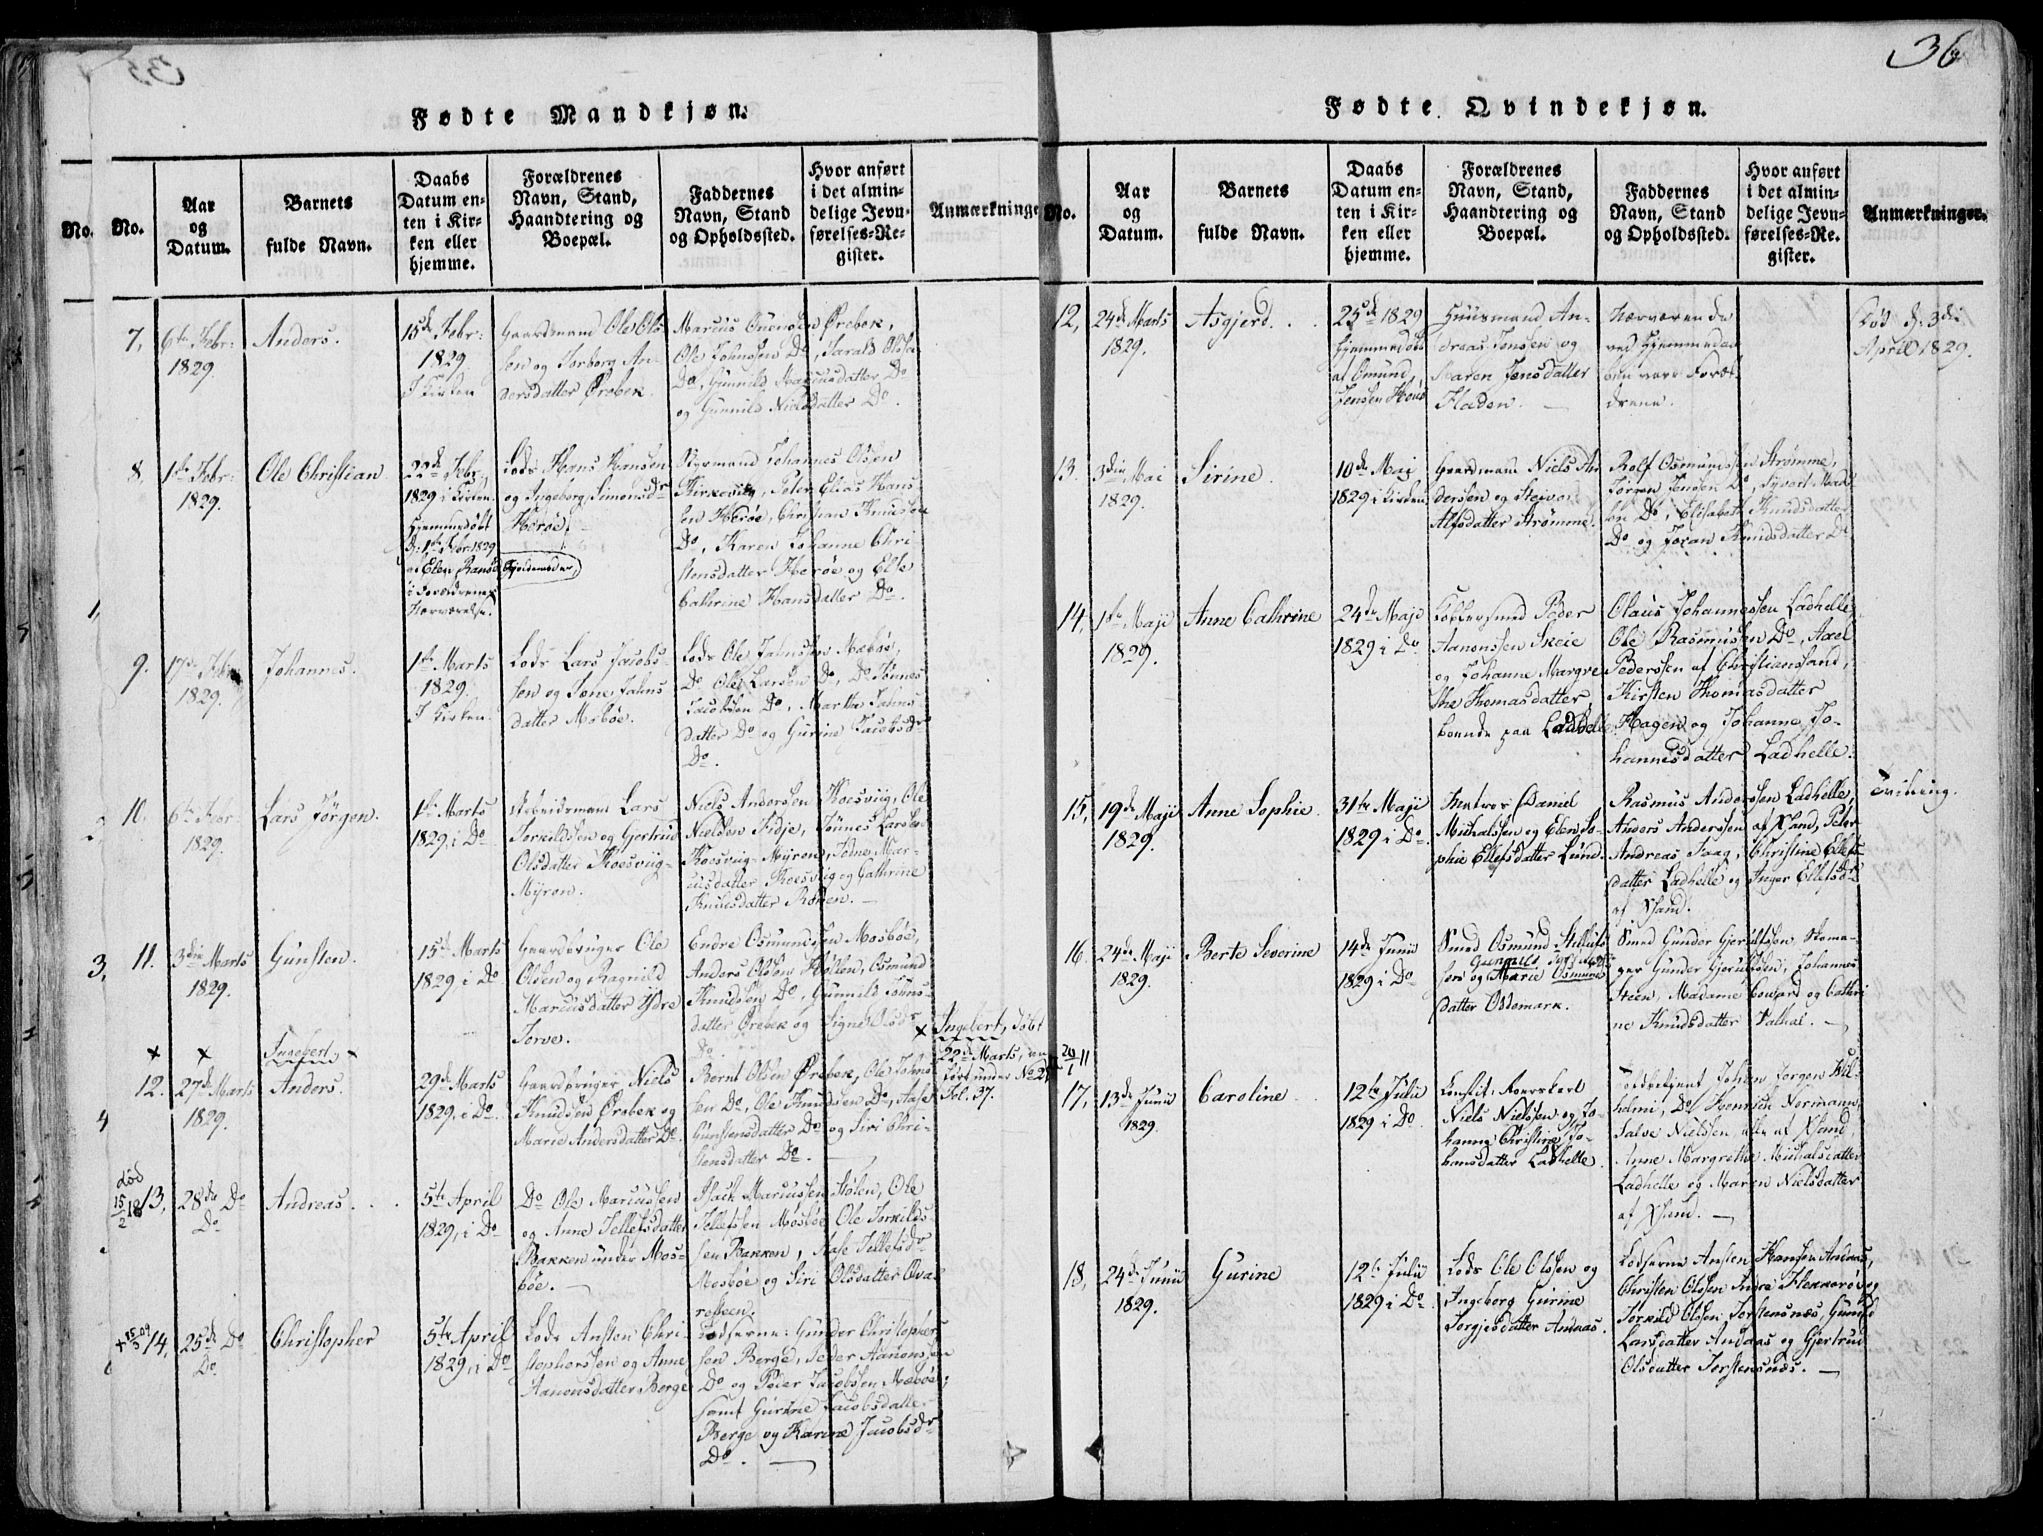 36
Fødte Mandkjøn.
No.
No.
Aar
og
Datum.
Barnets
fulde Navn.
Daabs
Datum en-
ten i Kir-
ken eller
hjemme.
Forældrenes
Navn, Stand,
Haandtering og
Boepæl.
Faddernes
Navn, Stand
og Opholdssted.
Hvor anført
i det almin-
delige Jevn-
førelses-Re-
gister.
Anmærkninge
7,
6te Febr:
1829.
Anders.
15de Febr:
1829
I Kirken
Gaardmand Ole Ols
sen og Torborg An-
dersdatter Ørebek.
Marcus Ouensen Ørebek,
Ole Johnssen Do, Harald Olsen
Do, Gunnild Marcusdatter Do
og Gunnild Nielsdatter Do.
8,
1te Febr:
1829.
Ole Christian
22de Febr:
1829 i Kirken
Hjemmedøbt
d: 1te Febr: 1829
af Elen
i Forældrenes
Nærværelse.
Lods Hans Hansen
og Ingeborg Simonsdr
Herøe.
Styrmand Johannes Olsen
Kirkeviig, Peter Elias Hans-
sen Herøe, Christian Knudsen
Do, Karen Johanne Chri
stensdatter Herøe og Elle
Cathrine Hansdatter Do.
9.
17de Febr
1829.
Johannes.
1te Marts
1829.
I Kirken.
Lods Lars Jacobs-
sen og Tone Jahns
datter Mebøe.
Lods Ole Jahnssen Mæbøe,
Do Ole Larsen Do, Do Tønnes
Jacobsen Do, Martha Jahns
datter Do og Gurine Jacobsdr
Do.
10.
6te Febr
1829.
Lars Jørgen.
1te Marts
1829, i Do
Arbeidsmand Lars
Torkildssen og Gjertrud
Olsdatter Koesviig-
Myren.
Niels Anderssen Koesviig, Ole
Nielssen Fidje, Tønnes Larssen
Koesviig-Myren, Tone Mar-
cusdatter Koesviig og Cathrine
Knudsdatter Roren.
3,
11.
3die Marts
1829.
Gunsten.
15de Marts
1829, i Do
Gaardbruger Ole
Olsen og Ragnild
Marcusdatter Ydre
Torve.
Endre Osmundssen Mosbøe,
Anders Olsen Høllen, Osmund
Knudssen Do, Gunnild Johns-
datter Ørebek og Signe Olsdr
Do.
×
×
Ingebert ×
12.
27de Marts
1829.
Anders.
29de Marts
1829, i Do
Gaardbruger Niels
Knudsen Ørebek og
Marie Andersdatter Do.
Bernt Olsen Ørebek, Ole Johns
sen Do, Ole Knudssen Do, Aase
Gunstensdatter Do og Siri Chri-
stensdatter Do.
× Ingebert, døbt
22de Marts, an
ført under No 21
Fol. 37.
død
15/2 18
13,
28de Do
Do
Andreas.
5te April
1829, i Do
Do Ole Marcussen
og Anne Tellefsdatter
Bakken under Mos-
bøe.
Isach Marcussen Stølen, Ole
Tellefssen Mosbøe, Ole Torkilds-
sen Bakken, Aase Tellefsdr
Mosbøe og Siri Olsdatter Qva
resteen.
+15/5 09
14,
25de Do
Do.
Christopher
5te April
1829, i Do
Lods Ansten Chri
stopherssen og Anne
Aanonsdatter Berge
Lodserne: Gunder Christophers
sen Berge, Peder Aanonssen
Do og Peter Jacobssen Mæbøe,
samt Gurine Jacobsdatter
Berge og Karine Jacobsdr
Do.
Fødte Qvindekjøn.
No.
Aar
og
Datum.
Barnets
fulde Navn.
Daabs
Datum en-
ten i Kir-
ken eller
hjemme.
Forældrenes
Navn, Stand,
Haandtering og
Boepæl.
Faddernes
Navn, Stand
og Opholdssted.
Hvor anført
i det almin-
delige Jevn-
førelses-Re.
gister.
Anmærkninger.
12,
24de Marts
1829.
Asgjerd.
25de 1829
Hjemmedøbt
af Omund
Jenssen
Huusmand An-
dreas Jenssen og
Maren Jensdatter
Fladen.
Nærværende
ved Hjemmedaa
ben vare Foræl-
drene.
død d: 3die
April 1829.
13.
3die Mai
1829.
Sirine.
10de Maj
1829 i Kirken
Gaardmand Niels An
dersen og
Alfsdatter Strømme.
Rolf Osmundssen Strømme,
Jørgen Jenssen Do, Syvert Mad
sen Do, Elisabeth Knudsdatter
Do og Joran Knudsdatter Do
14,
1te Maji
1829.
Anne Cathrine
24de Maji
1829 i Do
Kobbersmed Peder
Aanonssen Skeie
og Johanne Margre
the Thomasdatter,
boende paa Ladhelle
Olaus Johannessen Ladhelle,
Ole Rasmussen Do, Axel
Pederssen af Christianssand,
Kirsten Thomasdatter
Hagen og Johanne Jo-
hannesdatter Ladhelle.
15,
19de Maji
1829.
Anne Sophie.
31te Maji
1829 i Do.
Matros Daniel
Michalssen og Elen So-
phie Ellefsdatter Lund.
Rasmus Anderssen Ladhelle,
Anders Anderssen af Xsand, Peter
Andreas Faag, Christine Ellefs-
datter Ladhelle og Inger Ellefsdr
af Xsand.
Tvilling.
16.
24de Maji
1829.
Berte Severine
14de Junii
1829 i Do
Smed Osmund Stillufs
sen og Marie Osmunds
datter Oddemark.
Smed Gunder Gjerulssen, Skoma-
ger Gunder Gjerulssen, Johannes
Steen, Madame Coward og Cathri
ne Knudsdatter Valhal.
20/1 11
17,
13de Junii
1829.
Caroline
12te Julii
1829 i Do
Constit: Roerskarl
Niels Nielssen og Jo-
hanne Christine Jo-
hansdatter Ladhelle.
Toldbetjent Johan Jørgen Wil-
helmi, Do Henrich Normann,
Salve Nielssen, alle af Xsand,
Anne Margrethe Michalsdatter
Ladhelle og Maren Nielsdatter
af Xsand.
18,
24de Junii
1829.
Gurine
12te Julii
1829 i Do.
Lods Ole Olssen og
Ingeborg Gurine
Torgjesdatter Andaas.
Lodserne Ansten Hansen Andaas,
Christen Olssen Indre Flekkerøe og
Torkild Olssen Torstensnæs, Gunild
Larsdatter Andaas og Gjertrud
Olsdatter Torstensnæs.